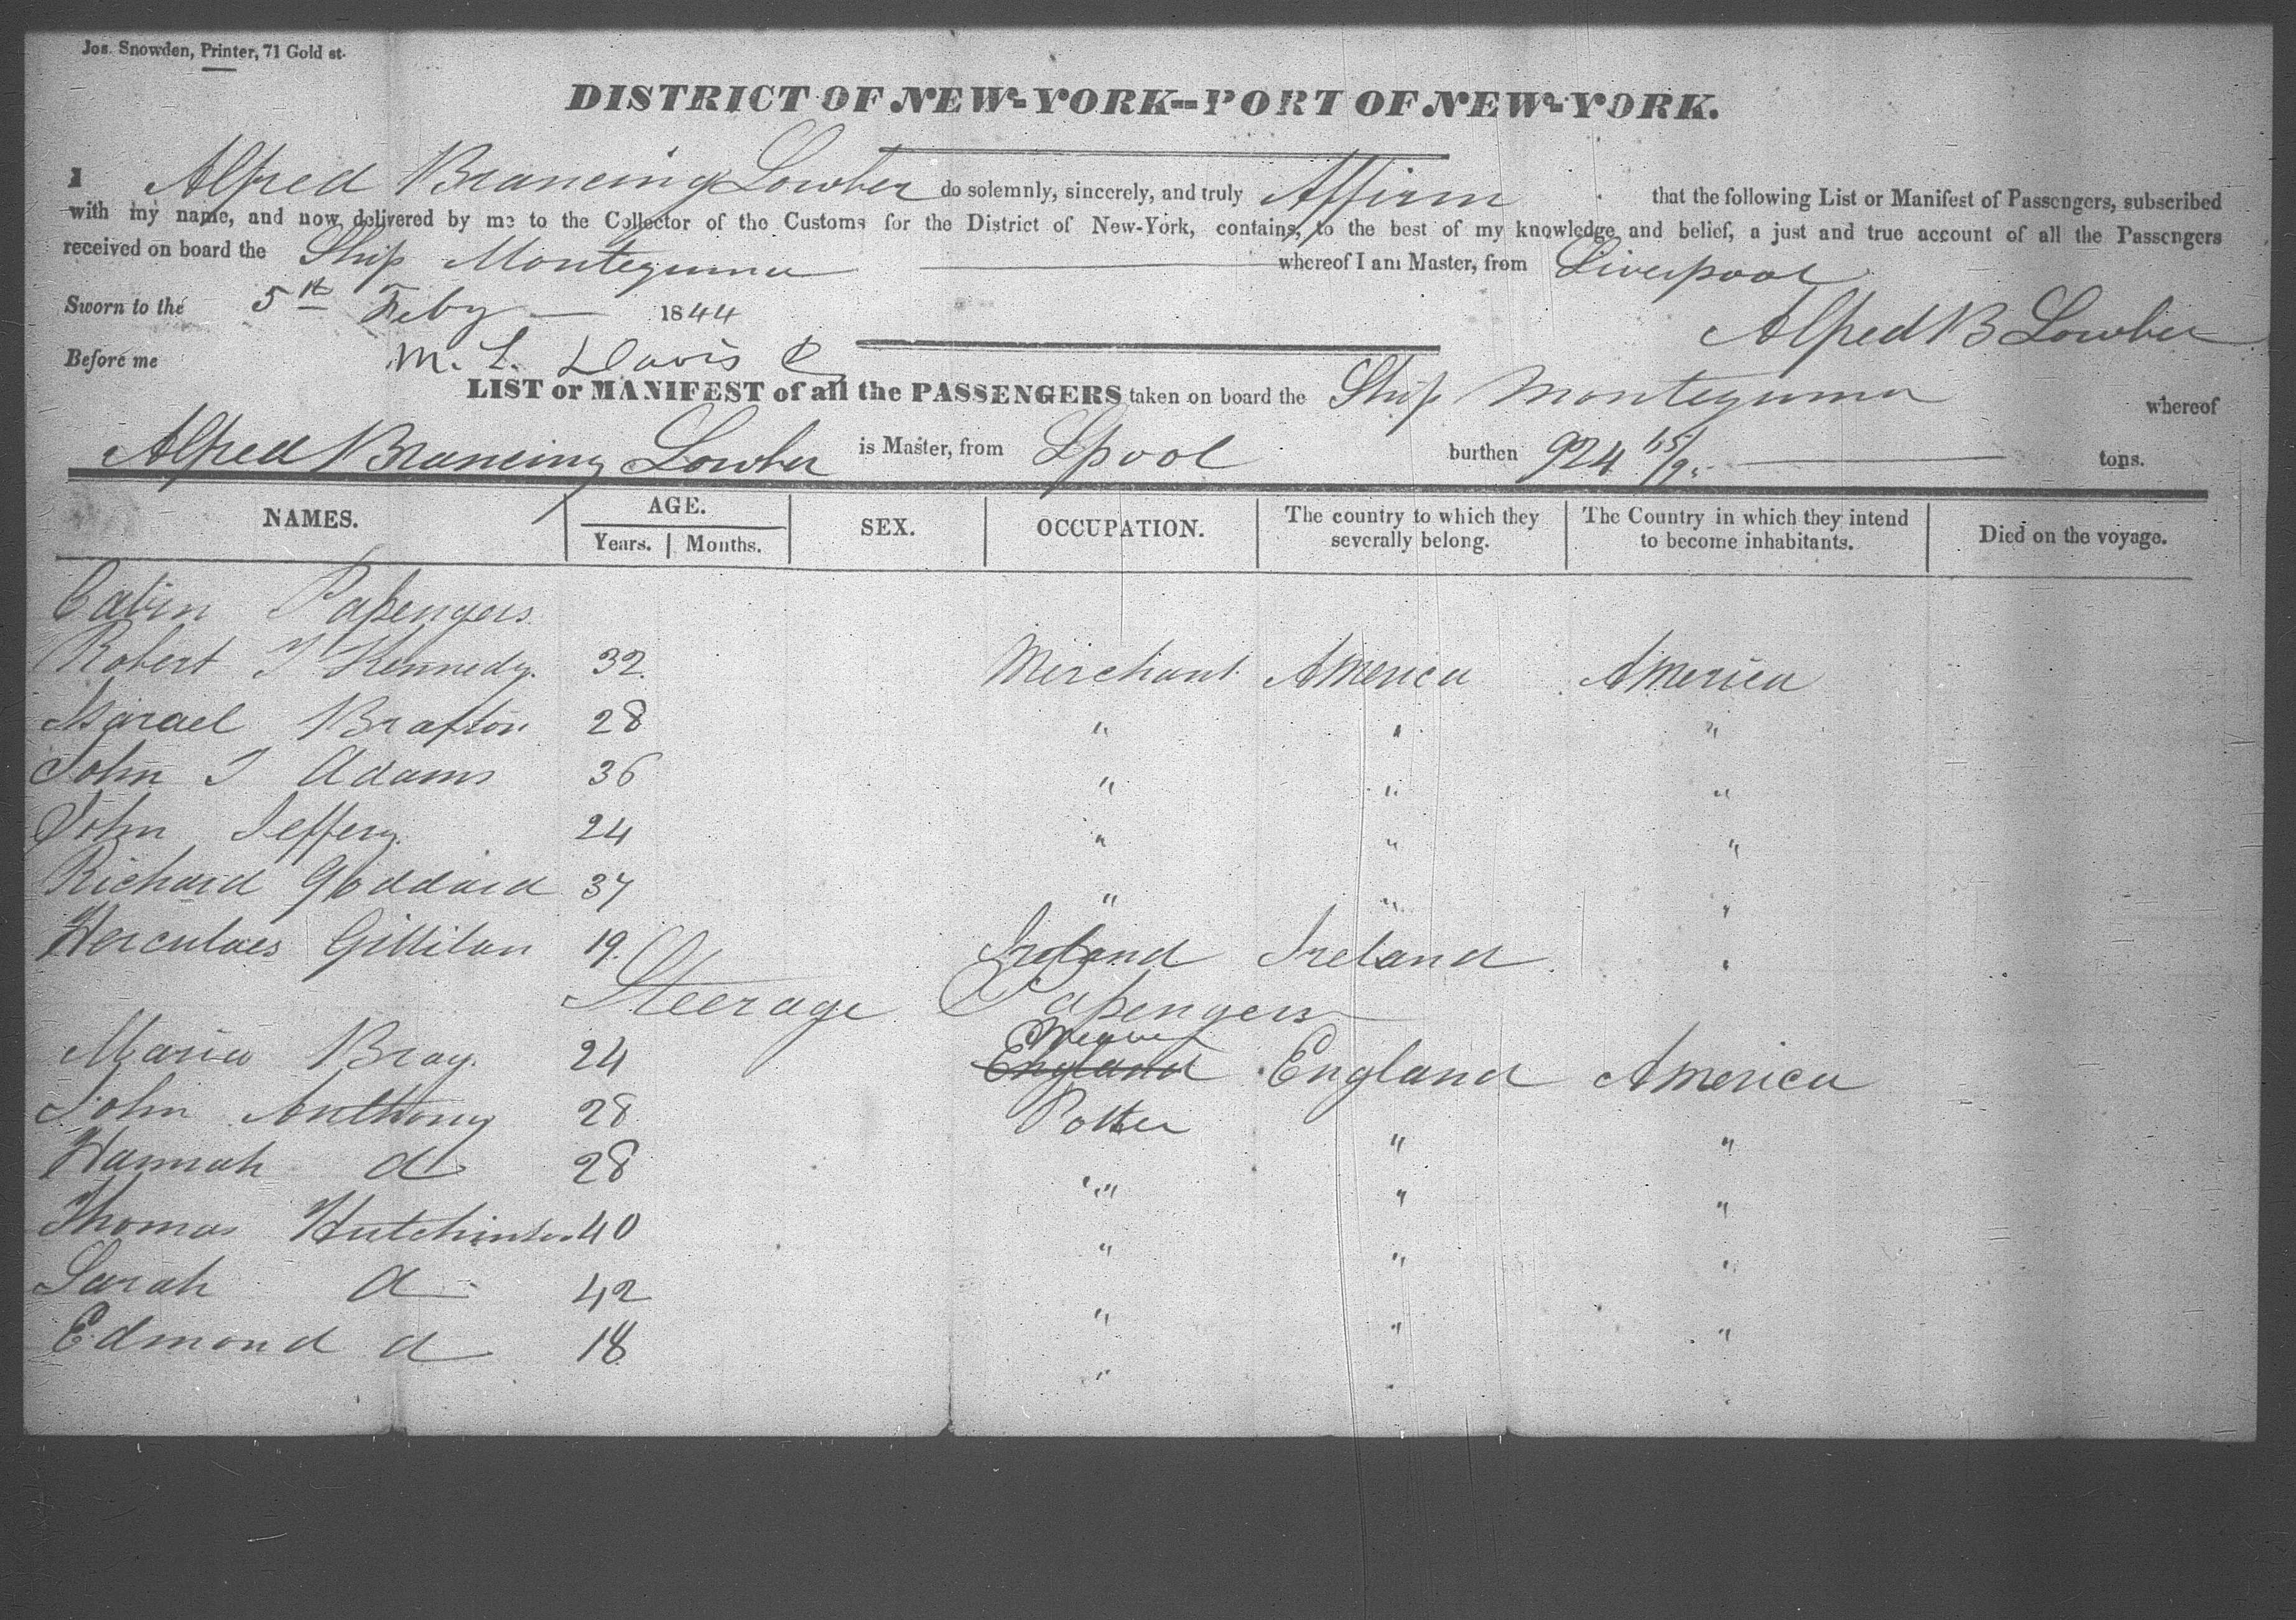 Jos. Snowden, Printer, 71 Gold st.
DISTRICT OF NEW-YORK--PORT OF NEW-YORK.
I Alfred Brancing Lowber do solemnly, sincerely, and truly Affirm that the following List or Manifest of Passengers, subscribed
with my name, and now delivered by me to the Collector of the Customs for the District of New-York, contains, to the best of my knowledge and belief, a just and true account of all the Passengers
received on board the Ship Montezuma whereof I am Master, from Liverpool
Sworn to the 5th Feby 1844
Alfred B Lowber
Before me M. L. Davis
LIST or MANIFEST of all the PASSENGERS taken on board the Ship Montezuma whereof
Alfred Brancing Lowber is Master, from Lpool burthen 924 tons.
NAMES. AGE. Years. Months. SEX. OCCUPATION. The country to which they severally belong. The Country in which they intend to become inhabitants. Died on the voyage.
Cabin Passengers
Robert T Kennedy. 32. Merchant America America
Israel 28 " " "
John T Adams 36 " " "
John Jeffery. 24 " " "
Richard Goddard 37 " " "
Herculaes Gillilan 19. Ireland Ireland "
Steerage Passengers
Maria Bray. 24 England England America
John Anthony 28 Potter " "
Hannah d 28 " " "
Thomas Hutchinson 40 " " "
Sarah d 42 " " "
Edmond d 18 " " "